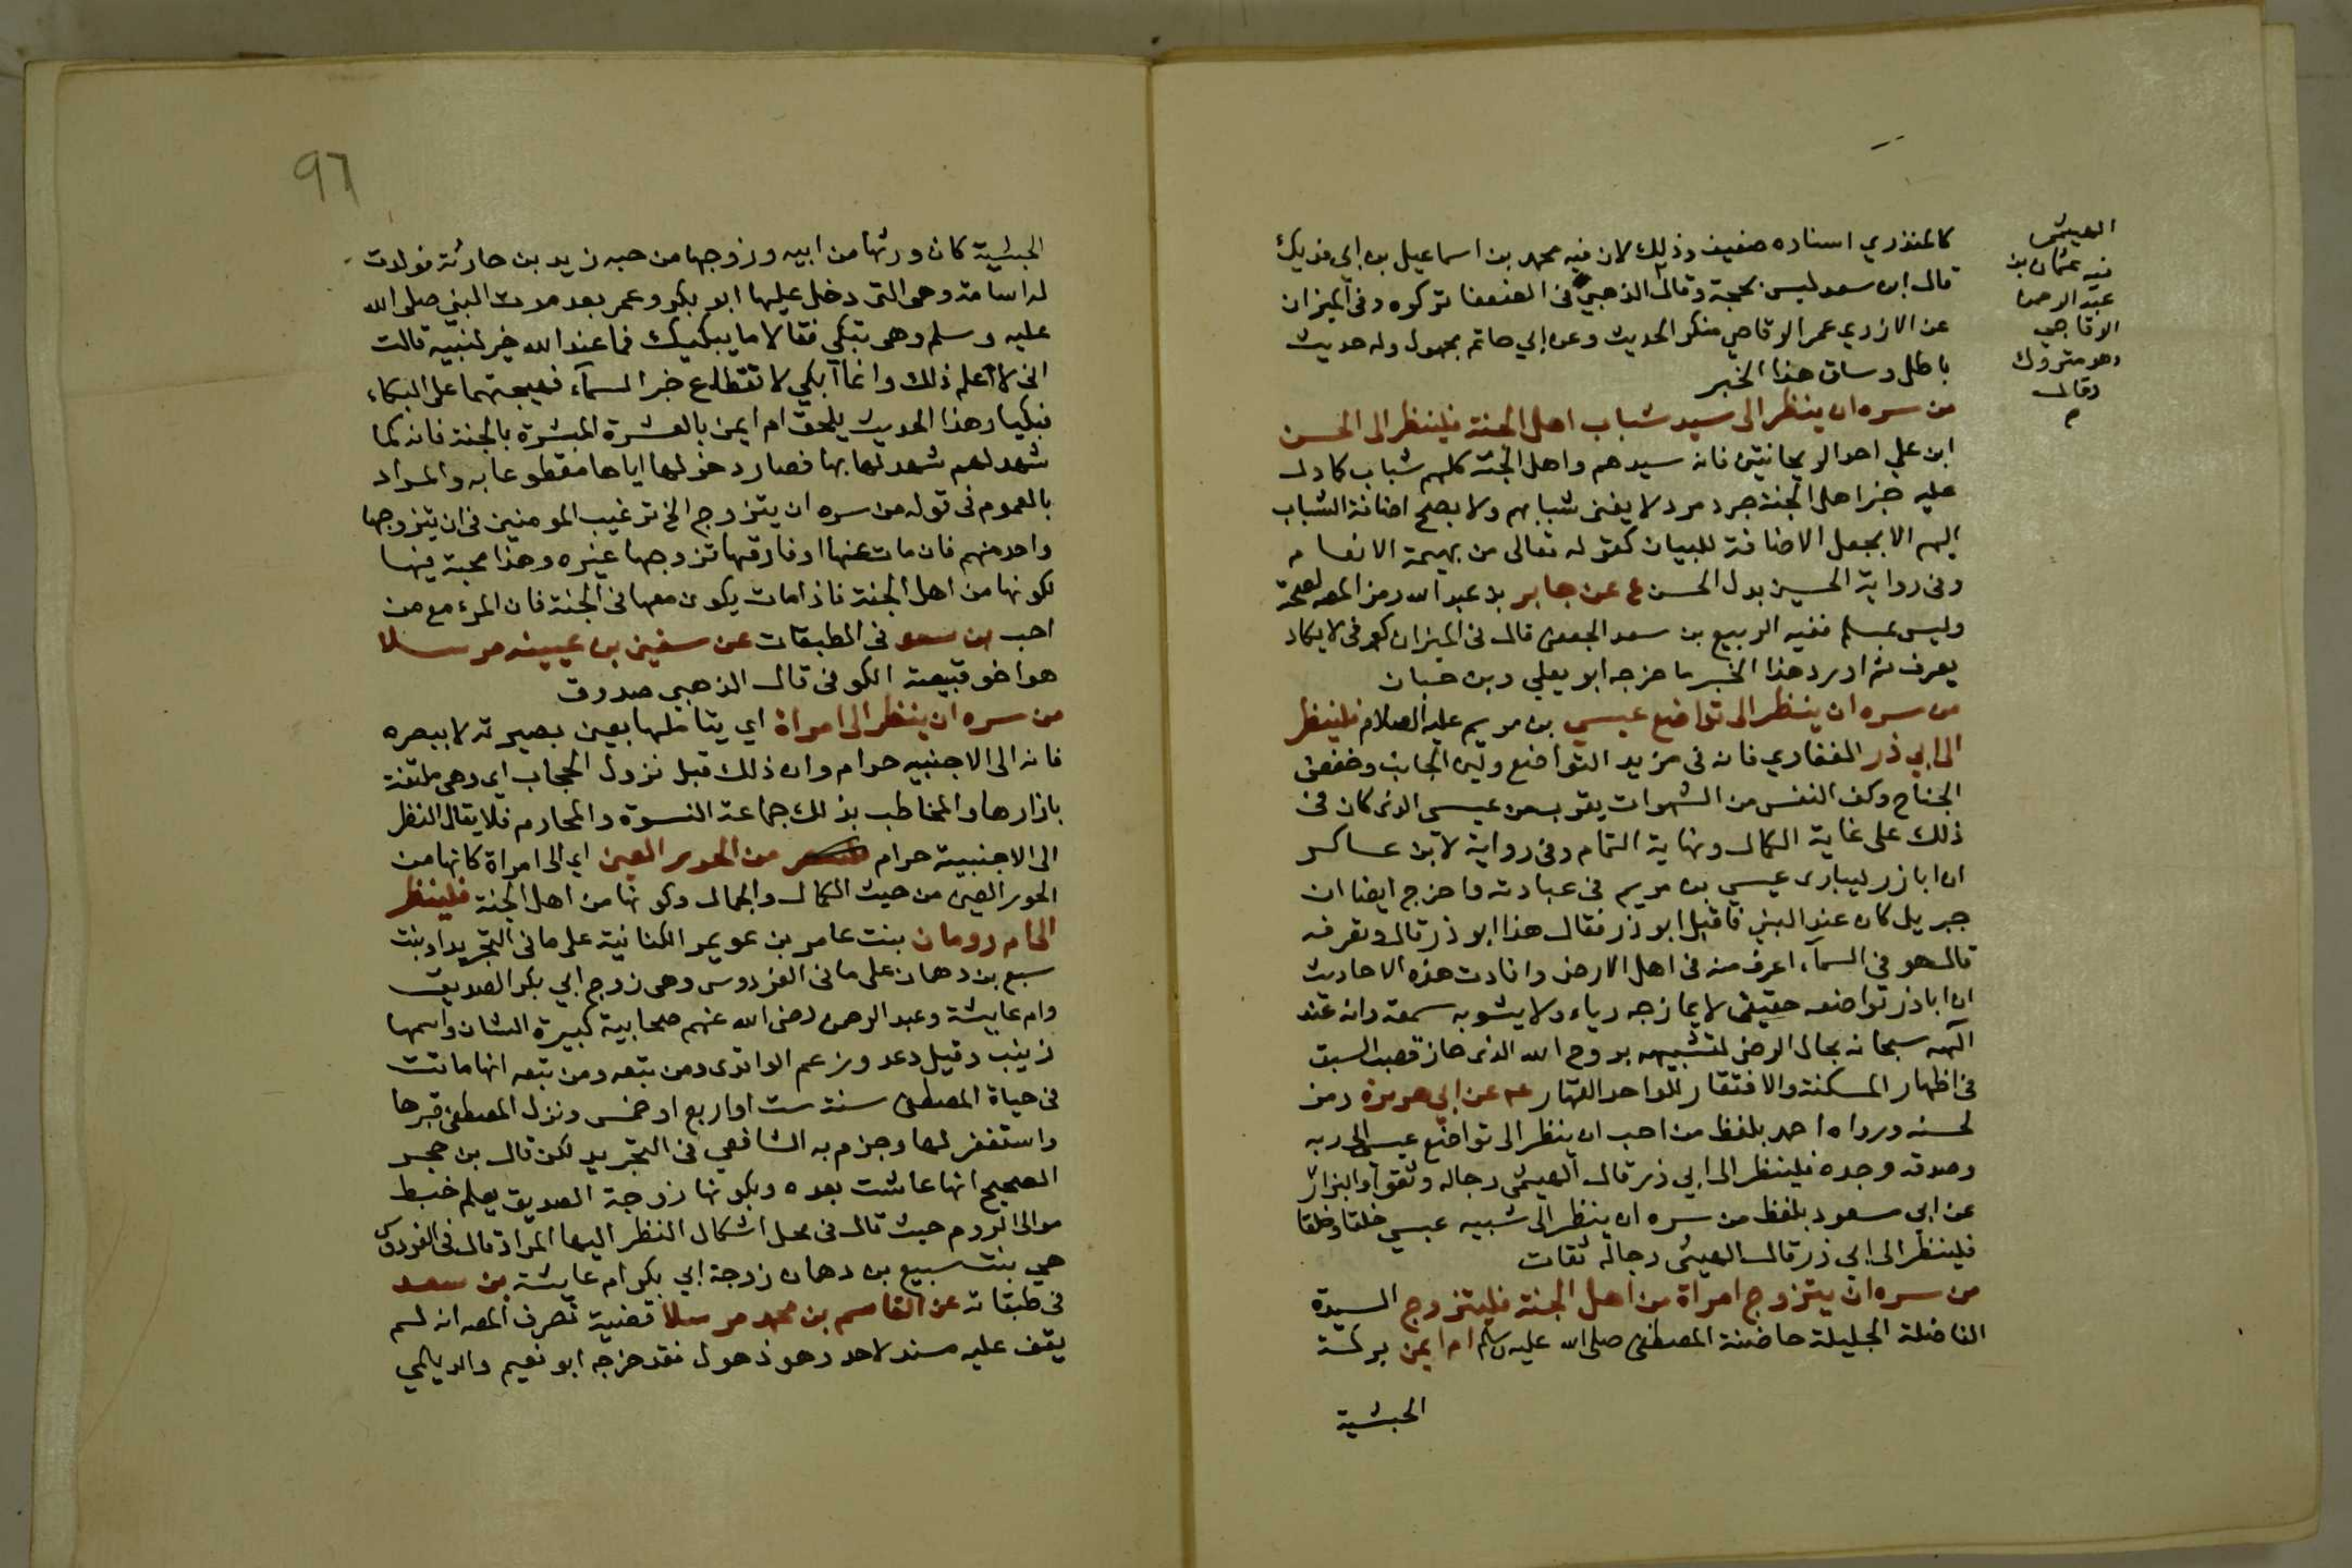 كالمنذري اسناده ضعيف وذلك لان فيه محمد بن اسماعيل بن ابي فديك
قال ابن سعد ليس بحجة وقال الذهبي في الضعفا تركوه وفي الميزان
عن الازدي عمر الوقاصي منكر الحديث وعن ابي حاتم مجهول وله حديث
باطل وساق هذا الخبر
الهيثمي
فيه عثمان بن
عبد الرحمن
الوقاصي
وهو متروك
وقال
م
من سره ان ينظر الى سيد شباب اهل الجنة فلينظر الى الحسن
ابن علي احد الريحانتين فانه سيدهم واهل الجنة كلهم شباب كما دل
عليه خبر اهل الجنة جرد مرد لا يفنى شبابهم ولا يصح اضافة الشباب
اليهم الا بجعل الاضافة للبيان كقوله تعالى من بهيمة الانعام
وفي رواية الحسين بدل الحسن ع عن جابر بن عبد الله رمز المصه لصحته
وليس بمسلم ففيه الربيع بن سعد الجعفي قال في الميزان كوفي لا يكاد
يعرف ثم اورد هذا الخبر ما خرجه ابو يعلي وبن حبان
من سره ان ينظر الى تواضع عيسي بن مريم عليه الصلام فلينظر
الى ابي ذر الغفاري فانه في مزيد التواضع ولين الجانب وخفض
الجناح وكف النفس من الشهوات يقرب من عيسى الذي كان في
ذلك على غاية الكمال ونهاية التمام وفي رواية لابن عساكر
ان اباذر ليباري عيسي بن مريم في عبادته واخرج ايضا ان
جبريل كان عند النبي فاقبل ابو ذر فقال هذا ابو ذر قال وتعرفه
قال هو في السمآء اعرف منه في اهل الارض وافادت هذه الاحاديث
ان اباذر تواضعه حقيقي لا يمازجه رياء ولا يشوبه سمعة وانه عند
الله سبحانه بحال الرضى لتشبيهه بروح الله الذي حاز قصب السبق
في اظهار المسكنة والافتقار للواحد القهار ع عن ابي هريرة رمز
لحسنه ورواه احمد بلفظ من احب ان ينظر الى تواضع عيسى الى ربه
وصدقه وجده فلينظر الى ابي ذر قال الهيثمي رجاله وثقوا والبزار
عن ابي مسعود بلفظ من سره ان ينظر الى شبيه عيسي خلقا وخلقا
فلينظر الى ابي ذر قال الهيثمي رجاله ثقات
من سره ان يتزوج امراة من اهل الجنة فليتزوج السيدة
الفاضلة الجليلة حاضنة المصطفى صلى الله عليه وسلم ام ايمن بركة
الحبشية
96
الحبشية كان ورثها من ابيه وزوجها من حبه زيد بن حارثة فولدت
له اسامة وهي التي دخل عليها ابو بكر وعمر بعد موت النبي صلى الله
عليه وسلم وهي تبكي فقالا ما يبكيك فما عند الله خير لنبيه قالت
اني لا اعلم ذلك وانما ابكي لانقطاع خبر السمآء فهيجتهما على البكاء
فبكيا وهذا الحديث يلحق ام ايمن بالعشرة المبشرة بالجنة فانه كما
شهد لهم شهد لها بها فصار دخولها اياها مقطوعا به والمراد
بالعموم في قوله من سره ان يتزوج الخ ترغيب المومنين في ان يتزوجها
واحد منهم فان مات عنها او فارقها تزوجها غيره وهذا محبة فيها
لكونها من اهل الجنة فاذا مات يكون معها في الجنة فان المرء مع من
احب بن سعد في الطبقات عن سفين بن عيينه مرسلا
هو اخو قبيصة الكوفي قال الذهبي صدوق
من سره ان ينظر الى امراة اي يتاملها بعين بصيرته لا ببصره
فانه الى الاجنبيه حرام وان ذلك قبل نزول الحجاب اي وهي ملتفة
بازارها والمخاطب بذلك جماعة النسوة والمحارم فلا يقال النظر
الى الاجنبية حرام من الحور العين اي الى امراة كانها من
الحور العين من حيث الكمال والجمال وكونها من اهل الجنة فلينظر
الى ام رومان بنت عامر بن عويمر الكنانية على ما في التجريد او بنت
سبع بن دهمان على ما في الفردوس وهي زوج ابي بكر الصديق
وام عايشة وعبد الرحمن رضى الله عنهم صحابية كبيرة الشان واسمها
زينب وقيل دعد وزعم الواقدي ومن تبعه ومن تبعه انها ماتت
في حياة المصطفى سنة ست او اربع او خمس ونزل المصطفى قبرها
واستغفر لها وجزم به الشافعي في التجريد لكن قال بن حجر
الصحيح انها عاشت بعده وبكونها زوجة الصديق يعلم خبط
موالى الروم حيث قال في محل اشكال النظر اليها المراد قال في الفردوس
هي بنت سبيع بن دهمان زوجة ابي بكر ام عايشة بن سعد
في طبقاته عن القاسم بن محمد مرسلا قضية تصرف المصه انه لم
يقف عليه مسندا لاحد وهو ذهول فقد خرجه ابو نعيم والديلمي